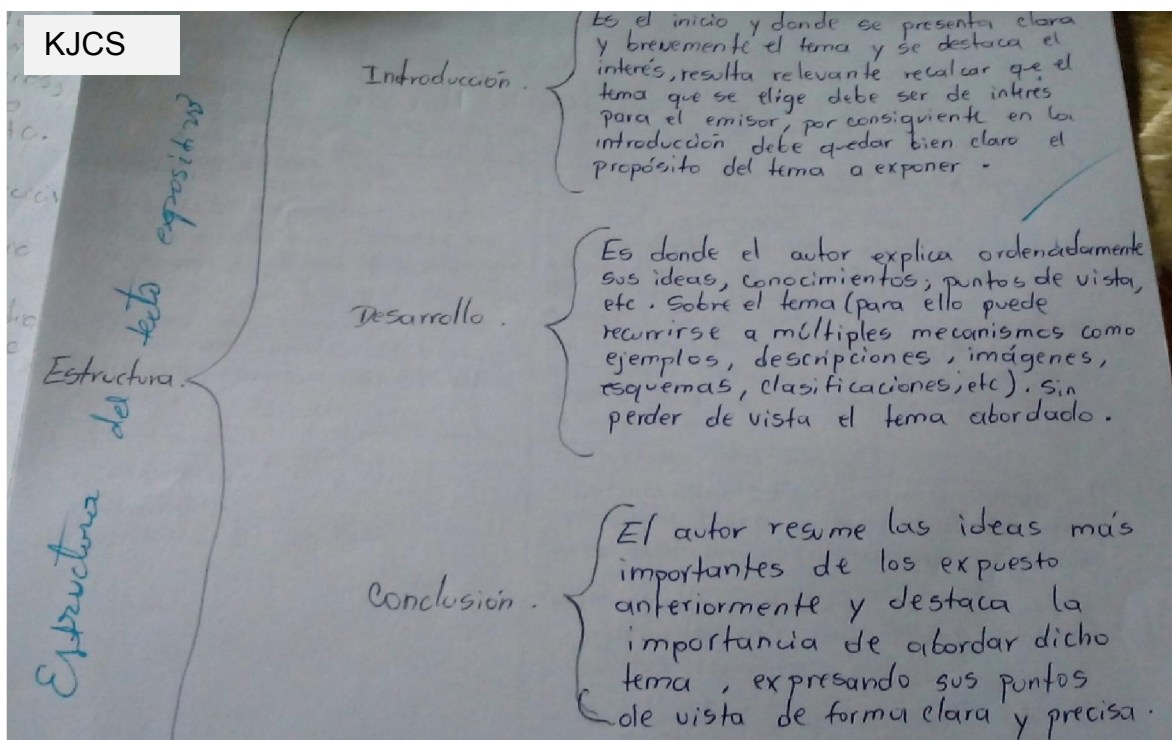 KJCS
Estructura del texto expositivo
Estructura.
Introducción.
Es el inicio y donde se presenta clara
y brevemente el tema y se destaca el
interés, resulta relevante recalcar que el
tema que se elige debe ser de interés
para el emisor, por consiguiente en la
introducción debe quedar bien claro el
propósito del tema a exponer.
Desarrollo.
Es donde el autor explica ordenadamente
sus ideas, conocimientos; puntos de vista,
etc. Sobre el tema (para ello puede
recurrirse a múltiples mecanismos como
ejemplos, descripciones, imágenes,
esquemas, clasificaciones, etc). Sin
perder de vista el tema abordado.
Conclusión.
El autor resume las ideas más
importantes de los expuesto
anteriormente y destaca la
importancia de abordar dicho
tema, expresando sus puntos
de vista de forma clara y precisa.